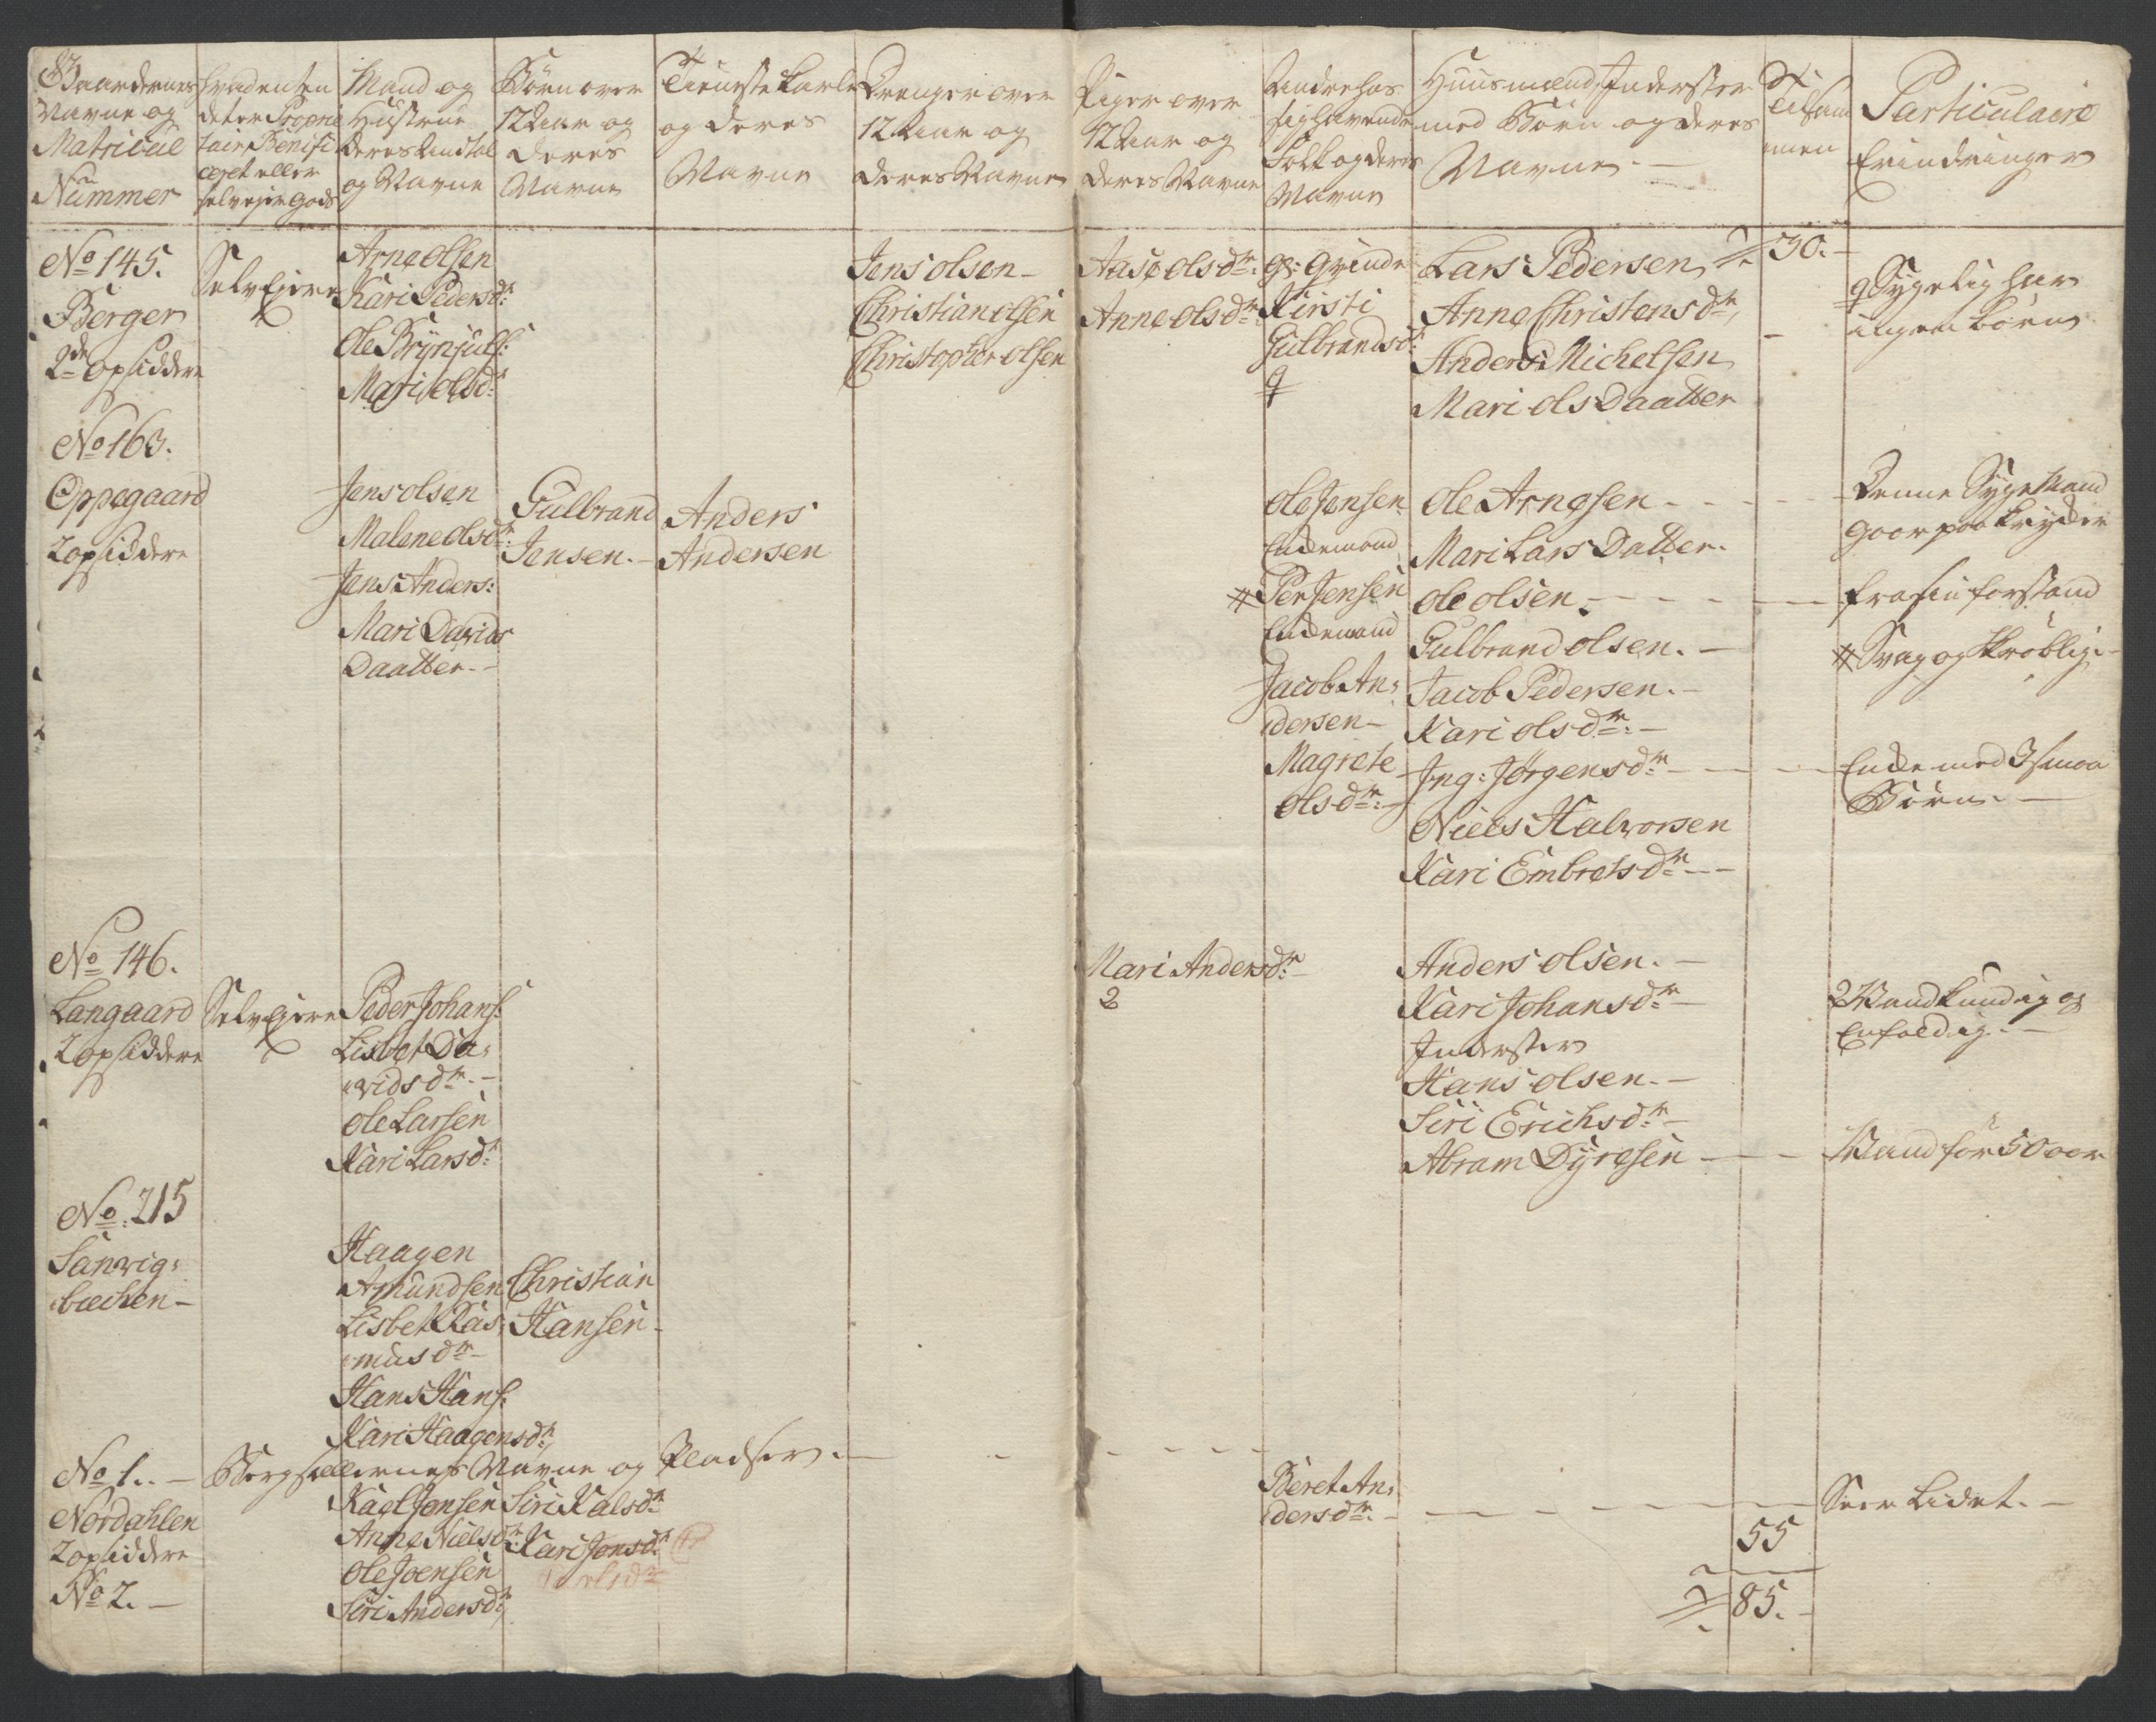 Gaardernes
Navne og
Matricul
Nummer
hvad enten
det er Proprie
tair, Benifi
ceret eller
selveier gods
Mand og
Hustrue
deres Antal
og Navne
Børn over
12 Aar og
deres
Navne
Tieneste Karle
og deres
Navne
Drenger over
12 Aar og
deres Navne
Piger over
12 Aar og
deres Navne
Andre hos
sig havende
Folk og deres
Navne
Huusmænd, Inderster
med Børn og deres
Navne. —
Tilsam
men
Particulaire
Erindringer
No 145.
Berger
2de opsiddere
Selvejere
Arne olsen
Kari Pedersdr:
Ole Brynjuls:
Mari olsdr
Jens olsen —
Christian olsen
Christopher olsen
Aase olsdr:
Anne olsdr:
qvinde
Kirsti
Gulbrandsdr:
Lars Pedersen
Anne Christensdr,
Anders Michelsen
Mari ols Daatter
30. —
Sygelig har
ingen børn
No 163.
Oppegaard
2 opsiddere
Jens olsen
Malene olsdr:
Jens Anders:
Mari Davids
Daatter. —
Gulbrand
Jensen. —
Anders
Andersen
Ole Jensen
Enkemand
# Per Jensen
Enkemand
Jacob An:
dersen —
Magrete
olsdr: —
Ole Arnesen — —
Mari Lars Datter.
Ole olsen — — —
Gulbrand olsen. —
Jacob Pedersen. —
Kari olsdr: —
Ing: Jørgensdr — —
Niels Halvorsen
Kari Embretsdr — —
Denne Syge Mand
gaar paa krykker
fra sin forstand
# Svag og skrøblig —
Enke med 3 smaa
Børn. —
No 146.
Langaard
2 opsiddere
Selvejere
Peder Johans:
Lisbet Da:
vidsdr. —
Ole Larsen
Kari Larsdr:
Mari Andersdr: —
2
Anders olsen. —
Kari Johansdr: —
Inderster
Hans olsen. —
Siri Erichsdr: —
Abram Dyresen — —
2 Vandkundig og
Enfoldig. —
Mand før 50 aar
No: 215
Sanvig:
bechen —
Haagen
Amundsen
Lisbet Ras:
musdr —
Hans Hans:
Kari Haagensdr:
Christian
Hansen —
No 1. — Bergsællernes Navne og Pladser. —
Nordahlen
2 opsiddere
No 2. —
Kael Jensen
Anne Nielsdr:
Ole Joensen
Siri Andersdr,
Siri Kalsdr
Kari Jonsdr
Beret An:
dersdr. — — —
Seer Lidet. —
55
85. —